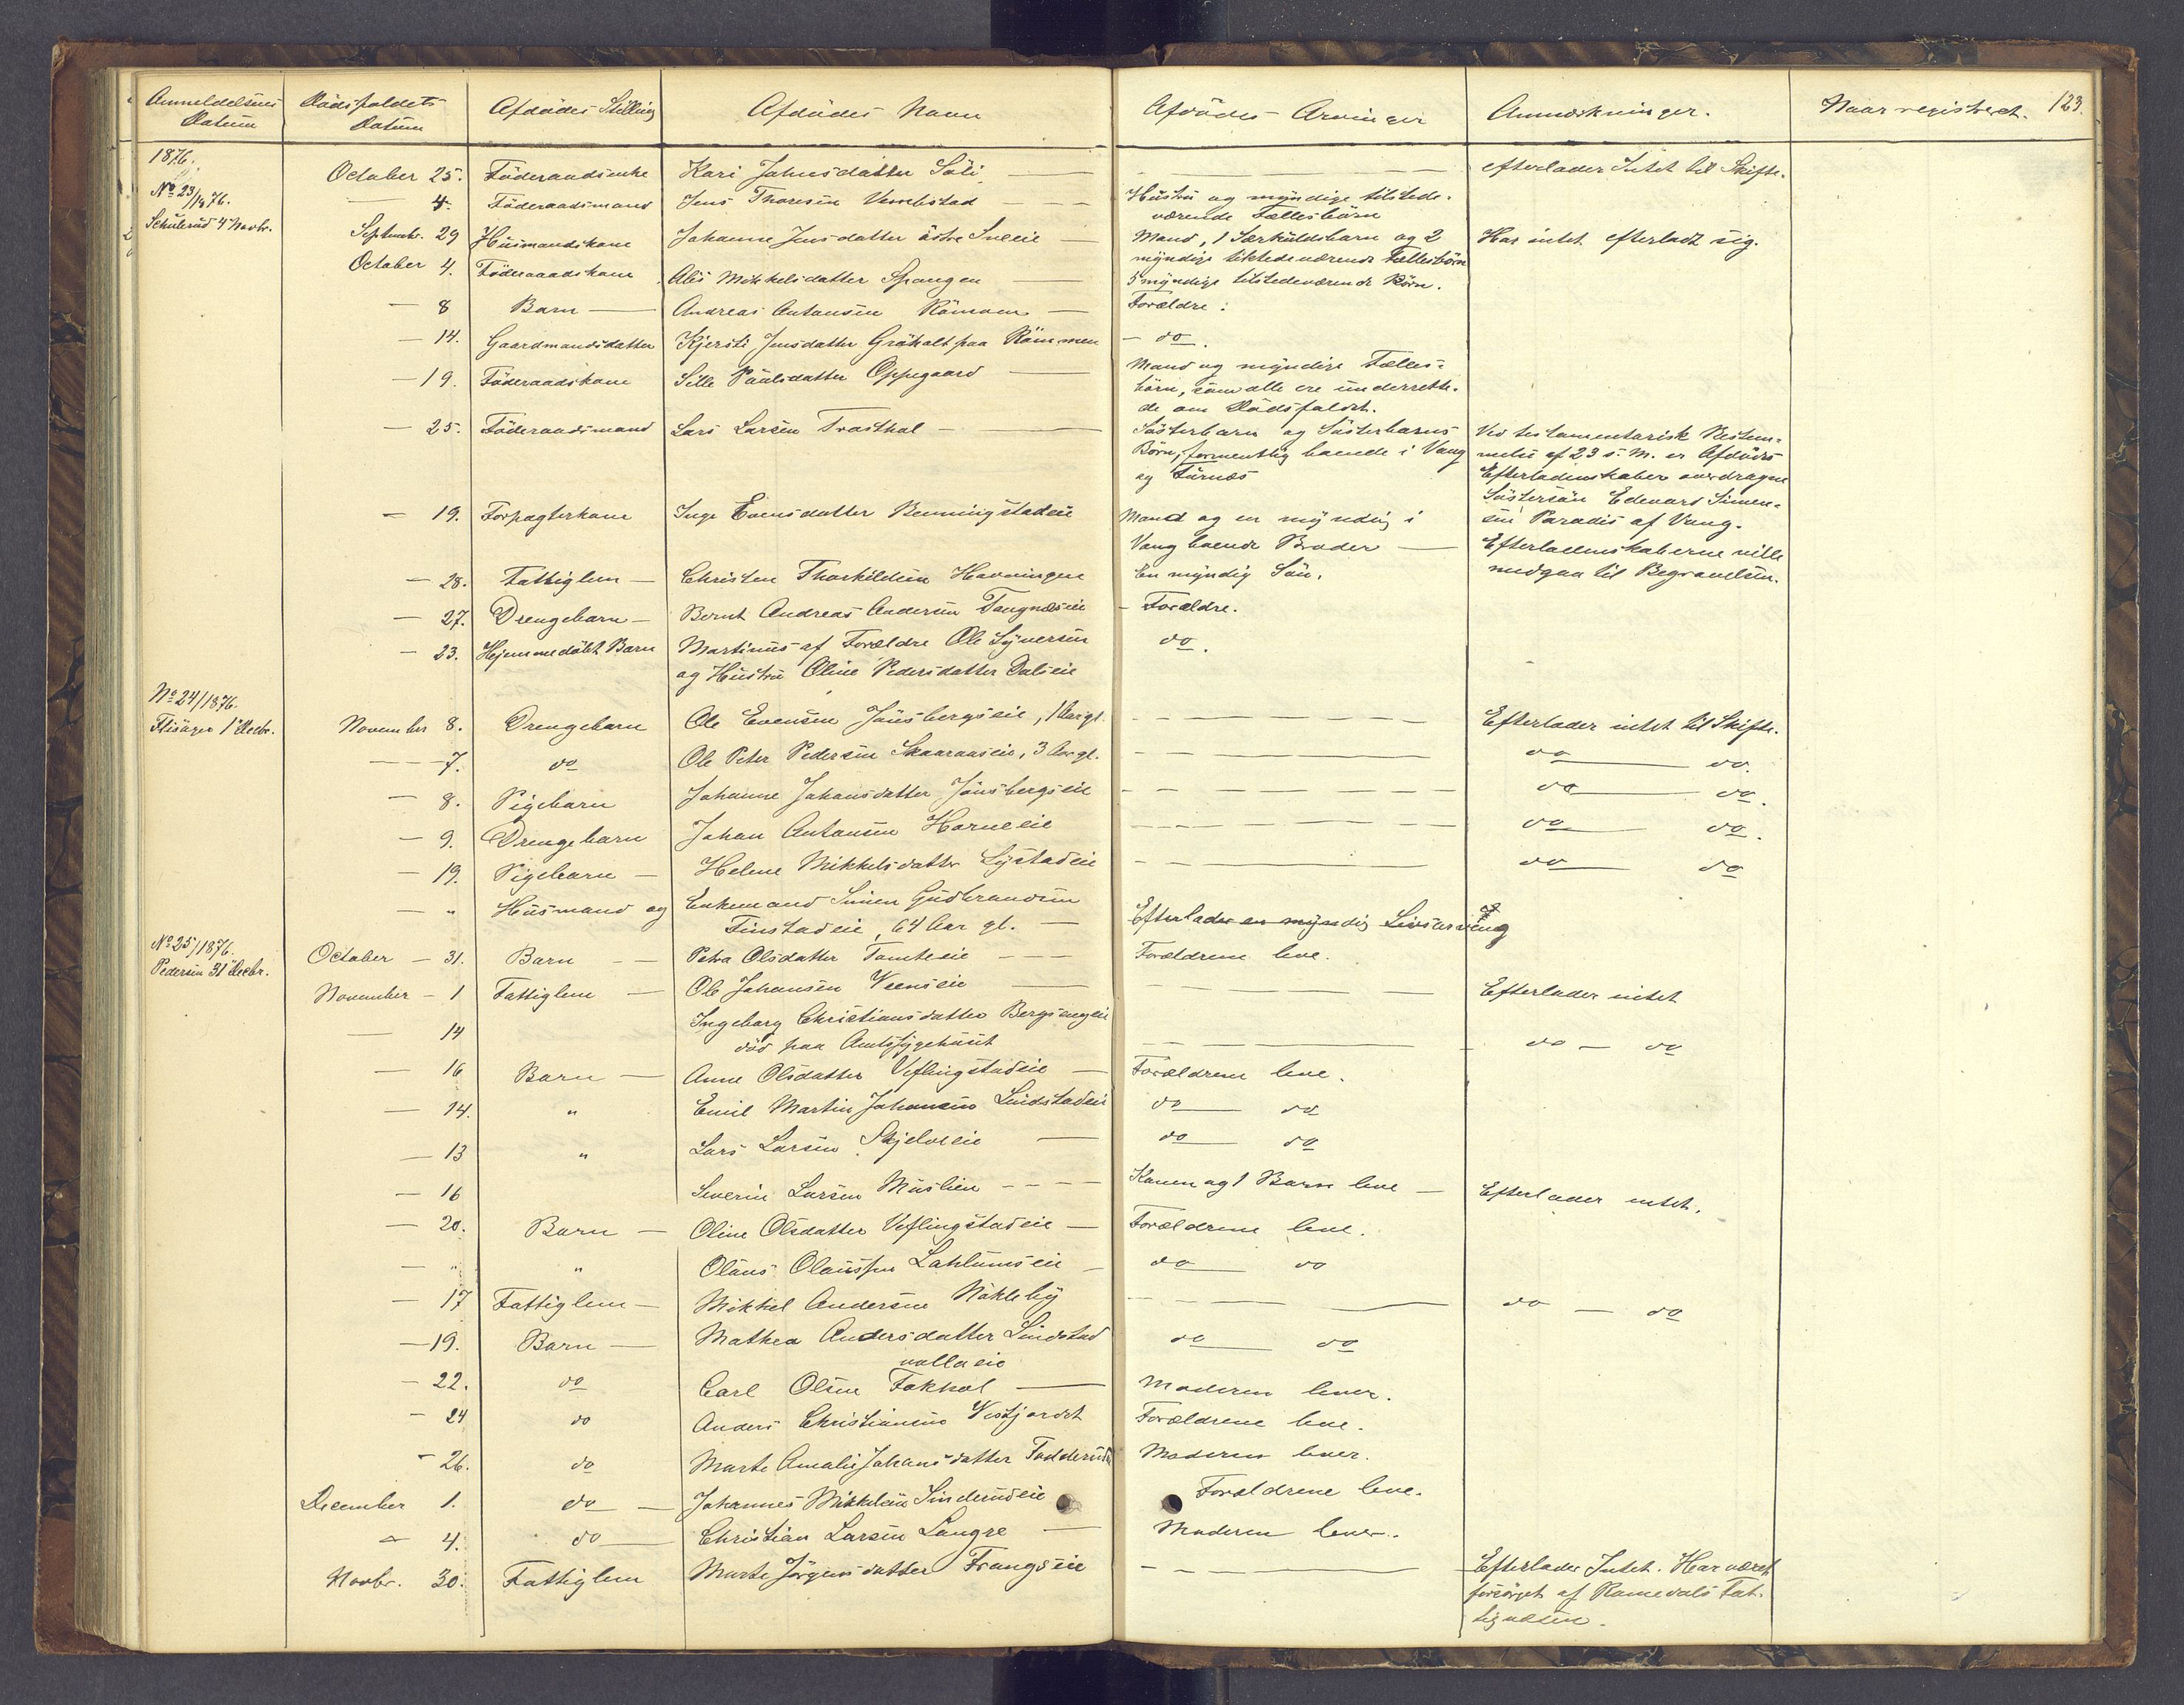 Anmeldelsens Datum | Dödsfaldets Datum | Afdödes Stilling | Afdödes Navn | Afdödes Arvinger | Anmærkninger. | Naar registreret. 123.
1876.
October 25. Föderaadsenke Kari Johnsdatter Söli — efterlader Intet til Skifte.
No 23/1876. — 4. Föderaadsmand Jens Thoresen — Hustru og myndige tilstede-
værende Fællesbörn
Schulerud 4 Novbr. Septembr. 29 Husmandskone Johanne Jensdatter östre — Mand, 1 Særkuldsbarn og 2 Har intet efterladt sig.
myndige tilstedeværende Fællesbörn
October 4. Föderaadskone Mikkelsdatter Spangen — 5 myndige tilstedeværende Börn.
— 8 Barn — Andreas Antonsen — Forældre.
— 14. Gaardmandsdatter Kjersti Jensdatter Gröholt paa Römmen — do.
— 19. Föderaadskone Sille Paulsdatter Oppegaard — Mand og myndige Fælles-
börn, som alle ere underrette-
de om Dödsfaldet.
— 25. Föderaadsmand Lars Larsen — Sösterbarn og Sösterbarns Ved testamentarisk Bestem-
Börn, formentlig boende i Vang melse af 23 s. M. er Afdödes
og Furnæs Efterladenskaber overdragne
Söstersön Edevard Simen-
— 19. Forpagterkone Inge Evensdatter Benningstadeie Mand og en myndig i sen Paradis af Vang.
Vang boende Broder — Efterladenskaberne ville
— 28. Fattiglem — Christen Thorkildsen En myndig Sön. medgaa til Begravelsen.
— 27. Drengebarn — Bernt Andreas Andersen Tangnæseie — Forældre.
— 23. Hjemmedöbt Barn Martinus af Forældre Ole Syversen do.
og Hustru Oline Pedersdatter Dalseie
No 24/1876.
1 Decbr. November 8. Drengebarn Ole Evensen Jönsbergseie, 1 Aar gl. — Efterlader intet til Skifte.
— 7. do Ole Peter Pedersen Skaaraaseie, 3 Aar gl. — do — do.
— 8. Pigebarn Johanne Johansdatter Jönsbergseie — do — do.
— 9. Drengebarn Johan Antonsen Horneeie — do — do.
— 19. Pigebarn — Helene Mikkelsdatter Lystadeie — do — do
— „ Husmand og Enkemand Simen Gudbrandsen
Finstadeie, 64 Aar gl. — Efterlader en myndig Livsarving
No 25/1876.
Pedersen 31 Decbr. October — 31. Barn — Petra Olsdatter Tomteeie — Forældrene leve.
November — 1 Fattiglem — Ole Johansen Veenseie — Efterlader intet
— 14 Ingeborg Christiansdatter Bergsengeie
död paa Amtssygehuset — do — do
— 16 Barn — Anne Olsdatter Veflingstadeie — Forældrene leve.
— 14. „ Emil Martin Johansen Lindstadeie do — do
— 13 „ Lars Larsen Skjelveeie — do — do
— 16 Severin Larsen Muslien — Konen og 1 Barn leve — Efterlader intet.
— 20. Barn — Oline Olsdatter Veflingstadeie — Forældrene leve.
— „ „ Olaus Olaussen Lahlumseie — do — do
— 17 Fattiglem — Mikkel Andersen Nökleby — do — do
— 19. Barn — Mathea Andersdatter Lindstad do — do
volleie
— 22. do Carl Olsen Fokhol — Moderen lever.
— 24 do Anders Christiansen Vestjordet Forældrene leve.
— 26. do Marte Amalie Johansdatter Moderen lever.
December 1. do — Johannes Mikkelsen Forældrene leve.
— 4. do — Christian Larsen Langre — Moderen lever.
Novbr. 30. Fattiglem Marte Jörgensdatter Frangseie — Efterlader Intet. Har været
forsörget af Romedals Fat-
tigvæsen.